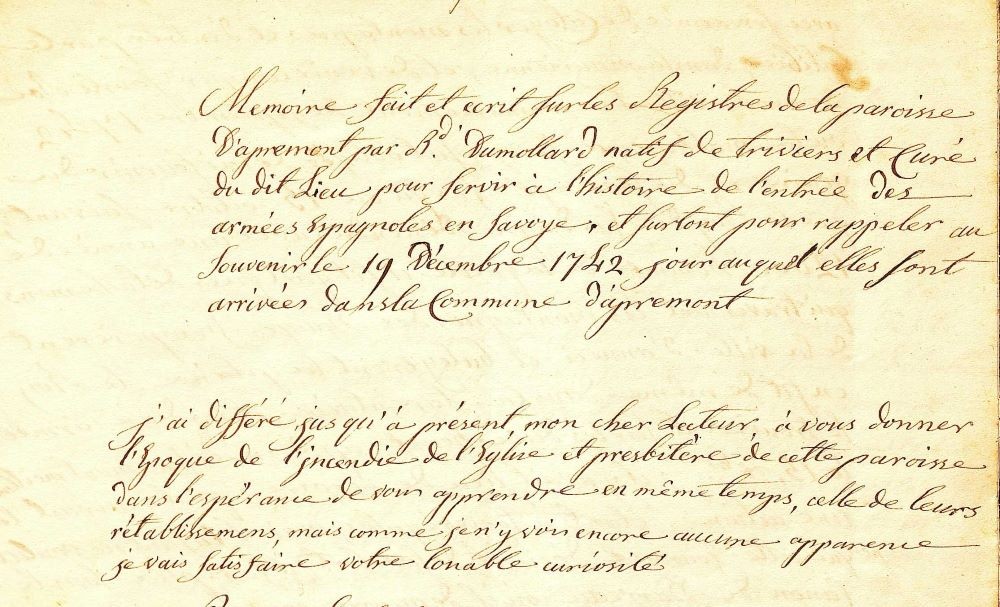 Memoire fait et ecrit sur les Registres de la paroisse
D'apremont par Rd. Dumollard natif de triviers et Curé
du dit Lieu pour servir à l'histoire de l'entrée des
armées Espagnoles en Savoye, et surtout pour rappeler au
Souvenir le 19 Décembre 1742 jour auquel elles sont
arrivées dans la Commune d'apremont
j'ai différé jusqu'à présent, mon cher Lecteur, à vous donner
l'Epoque de l'jncendie de l'Eglise et presbitère de cette paroisse
dans l'espérance de vous apprendre en même temps, celle de leurs
rétablissemens, mais comme je n'y vois encore aucune apparence
je vais satisfaire votre louable curiosité